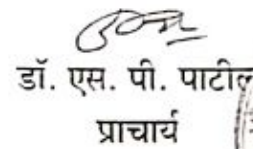 डॉ. एस. पी. पाटील
प्राचार्य